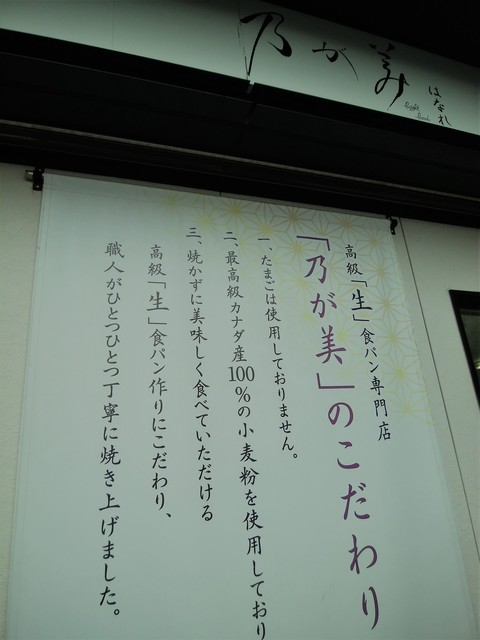 乃が美
はなれ
高級「生」食パン専門店
「乃が美」のこだわり
一、たまごは使用しておりません。
二、最高級カナダ産100%の小麦粉を使用しており
三、焼かずに美味しく食べていただける
高級「生」食パン作りにこだわり、
職人がひとつひとつ丁寧に焼き上げました。